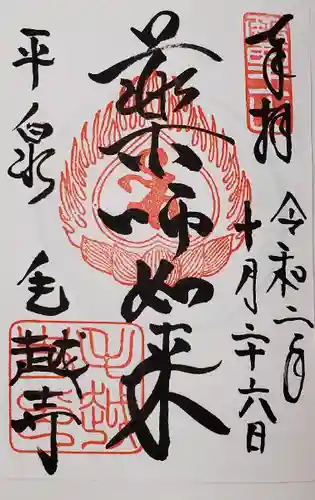 奉拝
令和二年
十月二十六日
薬師如来
平泉
毛越寺